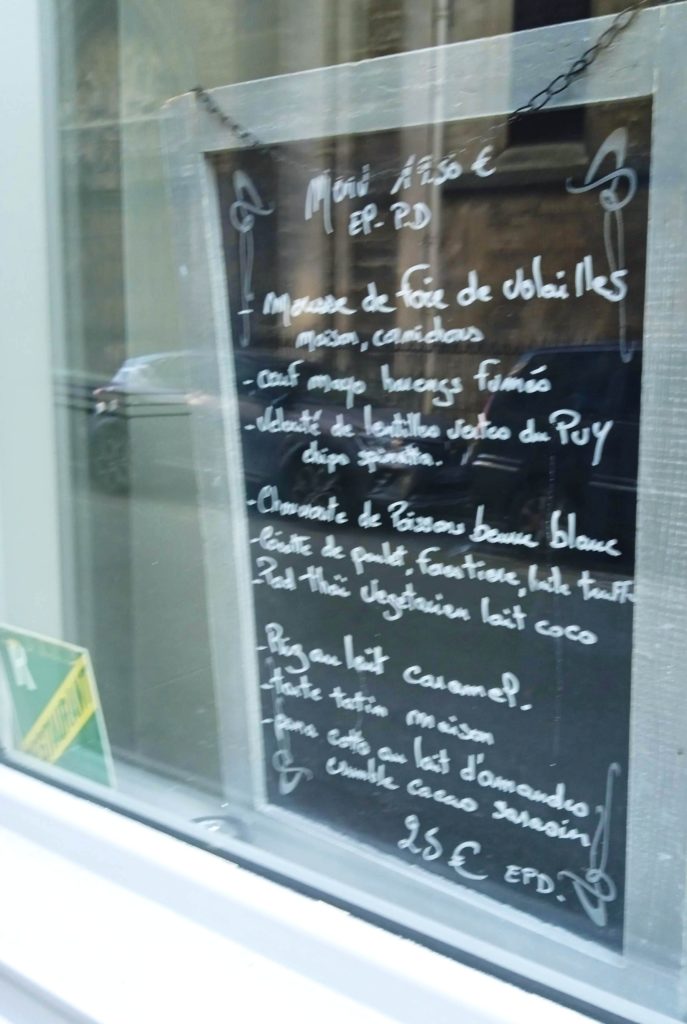 Menu 17.50 €
EP-PD
- Mousse de foie de volailles
maison, cornichons
- œuf mayo harengs fumés
- Velouté de lentilles vertes du Puy
chips
- Choucroute de Poissons beurre blanc
- de poulet, huile truffe
- Pad thaï vegetarien lait coco
- Riz au lait caramel.
- tarte tatin maison
- pana cotta au lait d'amandes
crumble cacao sarasin
25 € EPD.